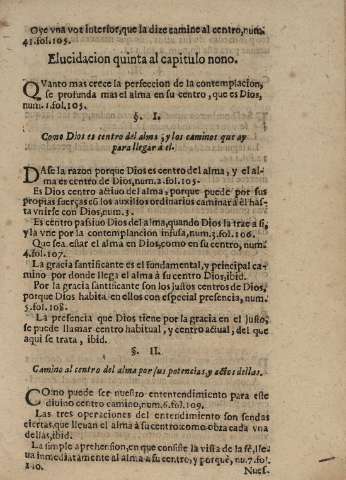 Oye vna voz interior, que la dize camine al centro, num.
41. fol. 105.
Elucidacion quinta al capitulo nono.
QVanto mas crece la perfeccion de la contemplacion,
se profunda mas el alma en su centro, que es Dios,
num. 1. fol. 105.
§. I.
Como Dios es centro del alma; y los caminos que ay
para llegar á el.
DAse la razon porque Dios es centro del alma, y el al-
ma es centro de Dios, num. 2. fol. 105.
Es Dios centro actiuo del alma, porque puede por sus
propias fuerças cō los auxilios ordinarios caminar á él has-
ta vnirse con Dios, num. 3.
Es centro passiuo Dios del alma, quando Dios la trae a sí,
y la vne por la contemplancion infusa, num. 3. fol. 106.
Que sea estar el alma en Dios, como en su centro, num.
4. fol. 107.
La gracia santificante es el fundamental, y principal ca-
mino por donde llega el alma á su centro Dios, ibid.
Por la gracia santificante son los justos centros de Dios,
porque Dios habita en ellos con especial presencia, num.
5. fol. 108.
La presencia que Dios tiene por la gracia en el Justo,
se puede llamar centro habitual, y centro actual, del que
aqui se trata, ibid.
§. II.
Camino al centro del alma por sus potencias, y actos dellas.
COmo puede ser nuestro entertendimiento para este
diuino centro camino, num. 6. fol. 109.
Las tres operaciones del entendimiento son sendas
ciertas, que lleuan el alma à su centro: como obra cada vna
dellas, ibid.
La simple aprehension, en que consiste la vista de la fè, lle-
ua inmediatamente al alma a su centro, y porquè, nu. 7. fol.
110.
Nues-